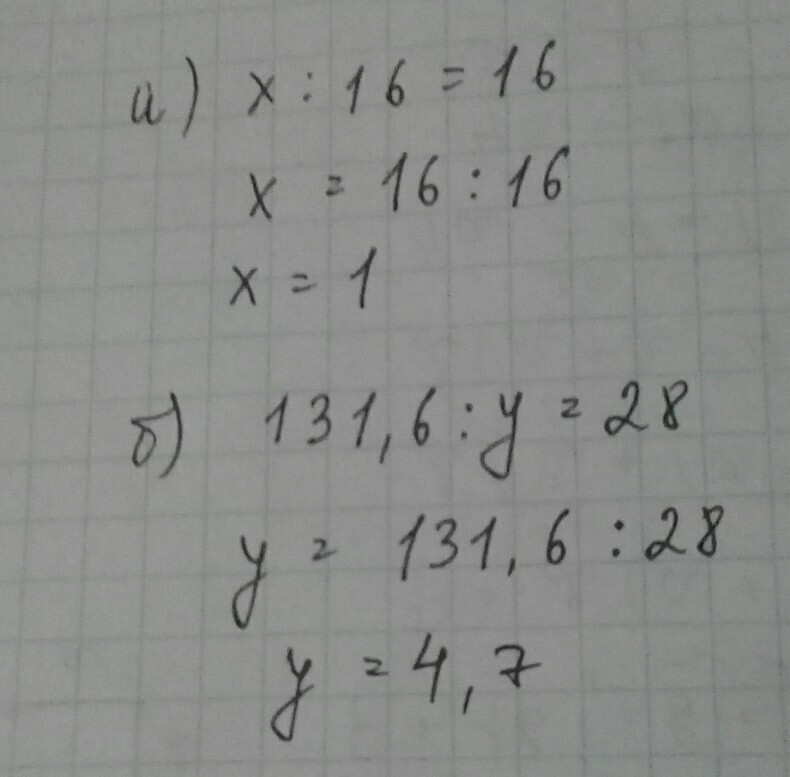 а) x : 16 = 16
x = 16 : 16
x = 1
б) 131,6 : y = 28
y = 131,6 : 28
y = 4,7